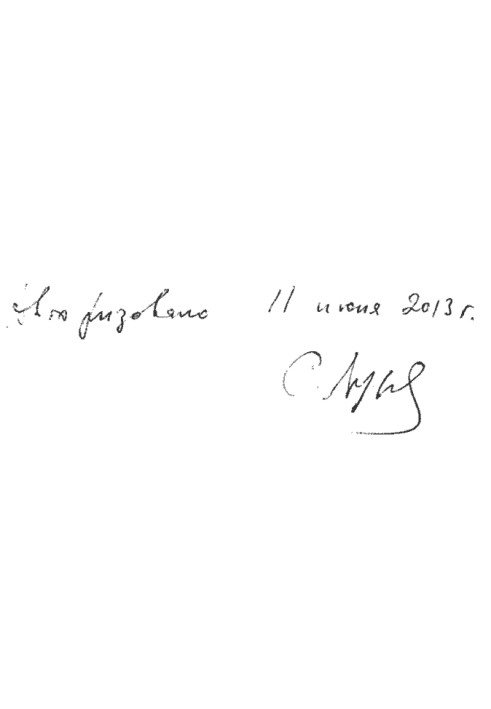 Авторизовано 11 июня 2013 г.
С.